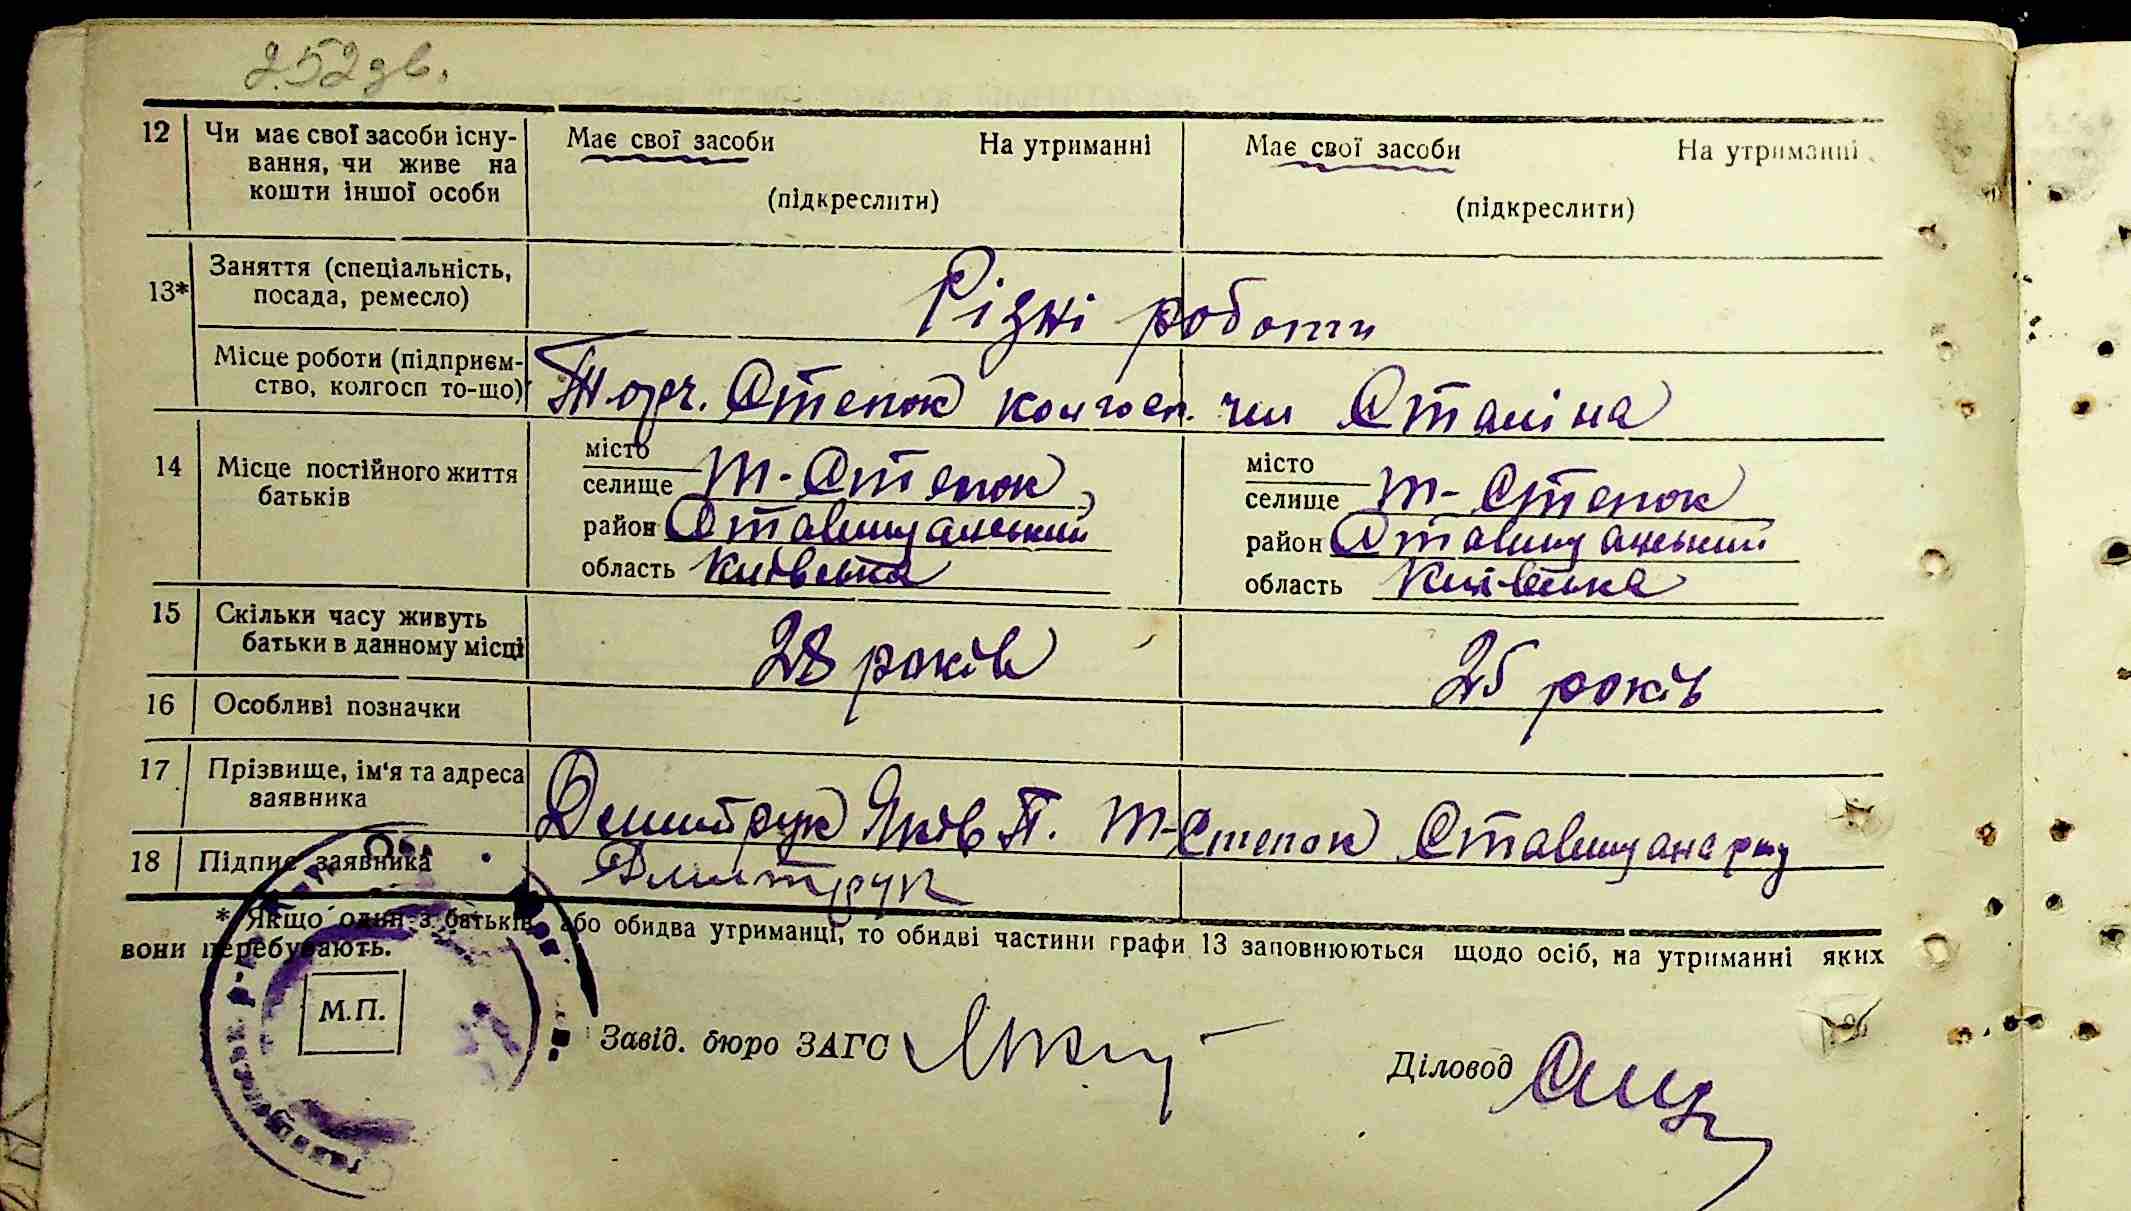 252 зв.
12 Чи має свої засоби існу-
вання, чи живе на
кошти іншої особи
Має свої засоби На утриманні
(підкреслити)
Має свої засоби На утриманні
(підкреслити)
13* Заняття (спеціальність,
посада, ремесло)
Різні роботи
Місце роботи (підприєм-
ство, колгосп то-що)
Степок колгосп. Сталіна
14 Місце постійного життя
батьків
місто
селище Т-Степок
район Ставищанський
область Київська
місто
селище Т-Степок
район Ставищанський
область Київська
15 Скільки часу живуть
батьки в данному місці
28 років
25 років
16 Особливі позначки
17 Прізвище, ім'я та адреса
заявника
Дмитрук Яків П. Т-Степок
18 Підпис заявника
Дмитрук
* Якщо один з батьків, або обидва утриманці, то обидві частини графи 13 заповнюються щодо осіб, на утриманні яких
вони перебувають.
М.П.
Завід. бюро ЗАГС
Діловод